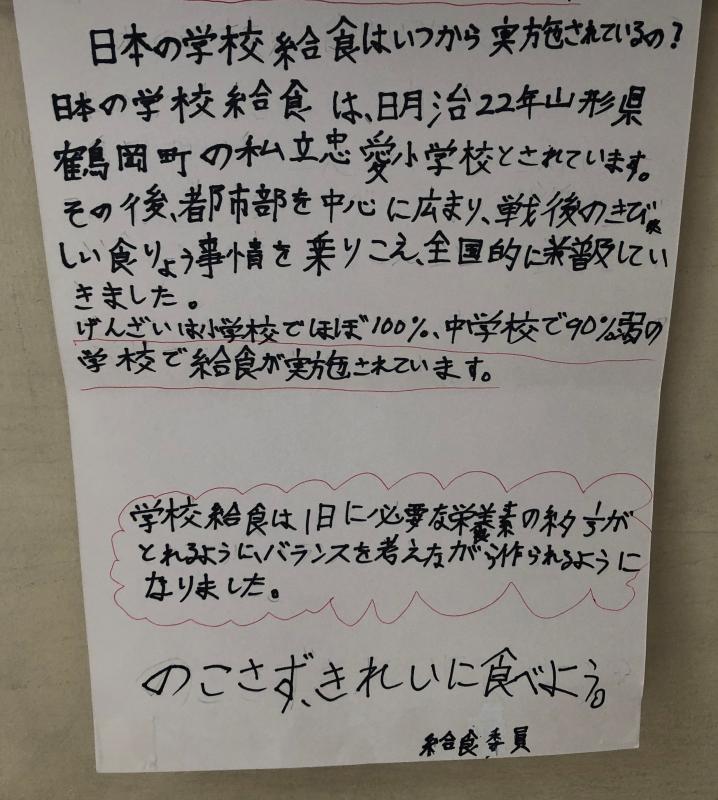 日本の学校給食はいつから実施されているの?
日本の学校給食は、明治22年山形県
鶴岡町の私立忠愛小学校とされています。
その後、都市部を中心に広まり、戦後のきび
しい食りょう事情を乗りこえ、全国的に普及してい
きました。
げんざいは小学校でほぼ100%、中学校で90%弱の
学校で給食が実施されています。
学校給食は1日に必要な栄養素の約1/3が
とれるように、バランスを考えながら作られるように
なりました。
のこさず、きれいに食べよう。
給食委員